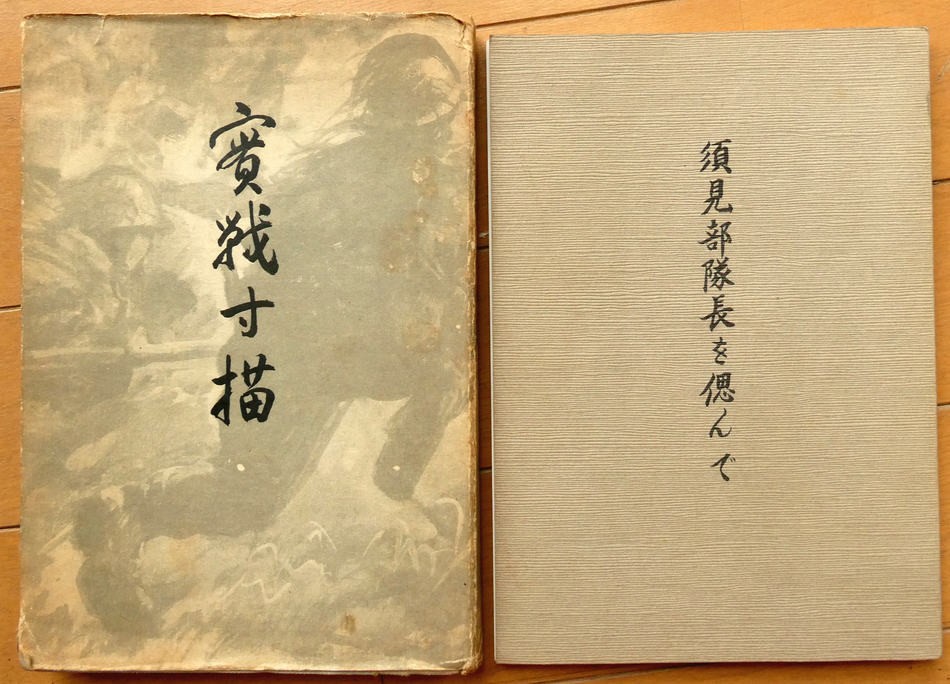 實戰寸描
須見部隊長を偲んで